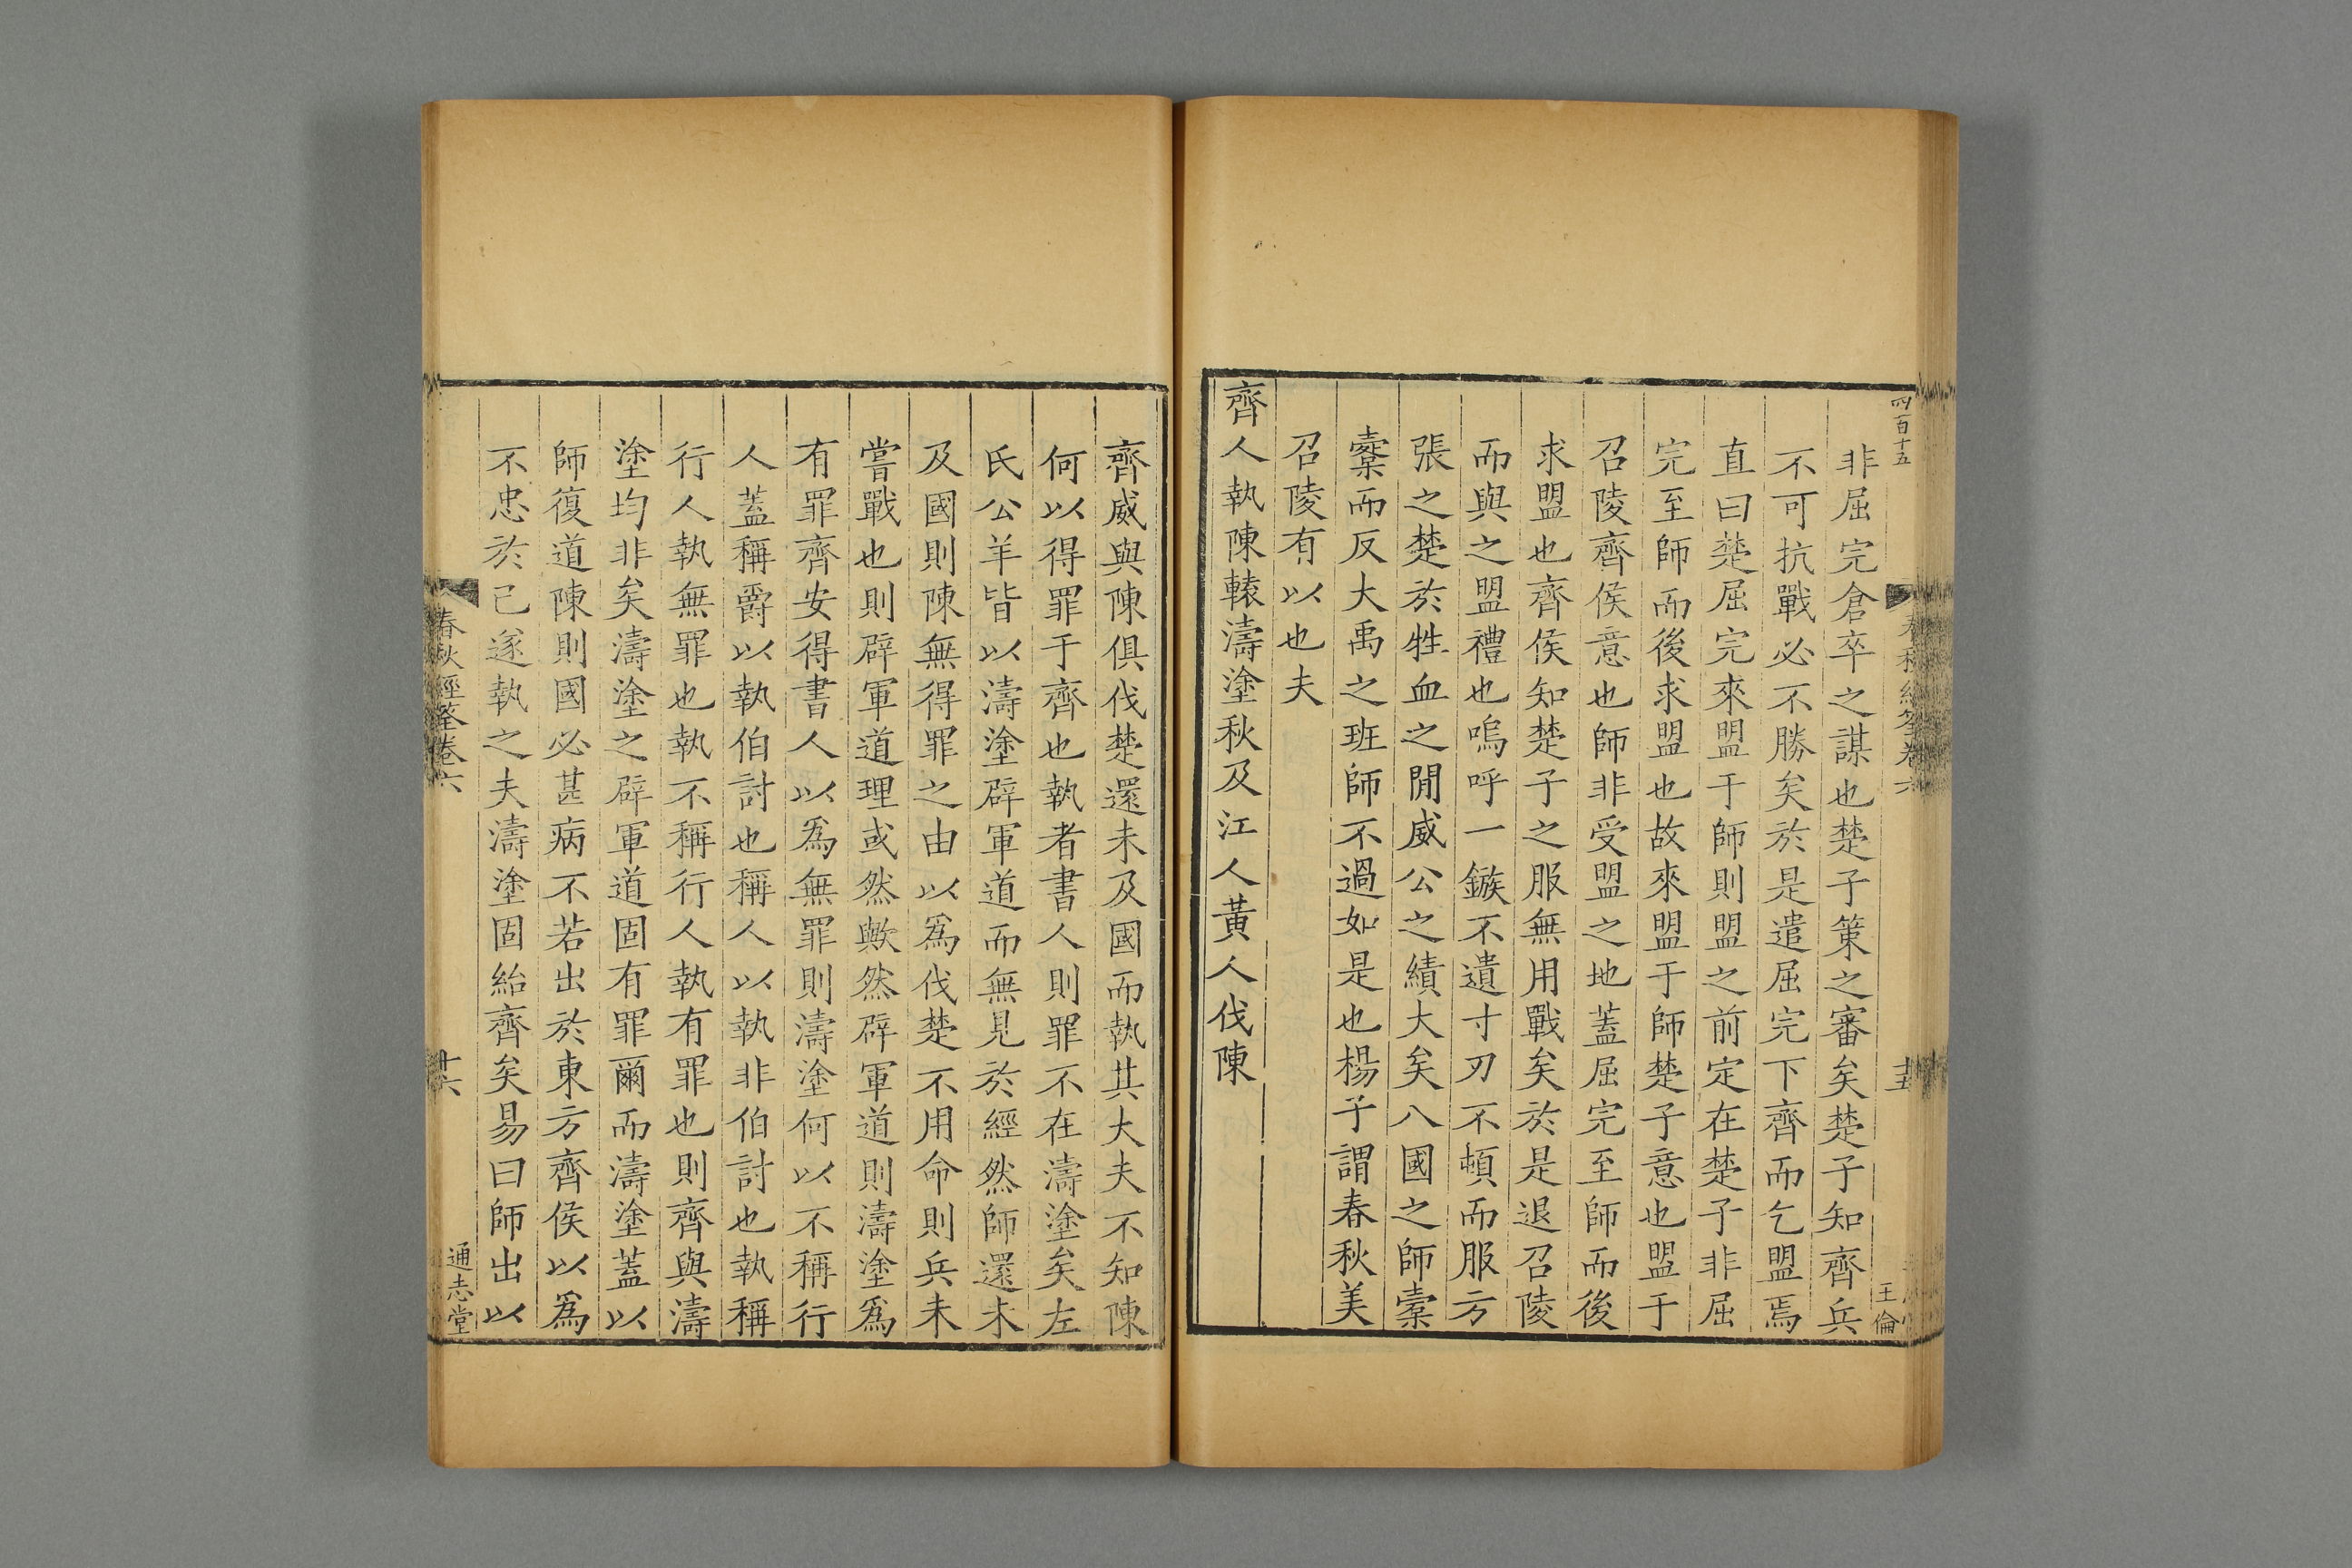 四百十五
非屈完倉卒之謀也楚子策之審矣楚子知齊兵
不可抗戰必不勝矣於是遣屈完下齊而乞盟焉
直曰楚屈完來盟于師則盟之前定在楚子非屈
完至師而後求盟也故來盟于師楚子意也盟于
召陵齊侯意也師非受盟之地蓋屈完至師而後
求盟也齊侯知楚子之服無用戰矣於是退召陵
而與之盟禮也嗚呼一鏃不遺寸刃不頓而服方
張之楚於牲血之間威公之績大矣八國之師橐
櫜而反大禹之班師不過如是也楊子謂春秋美
召陵有以也夫
齊人執陳轅濤塗秋及江人黃人伐陳
十五
王倫
齊威與陳俱伐楚還未及國而執其大夫不知陳
何以得罪于齊也執者書人則罪不在濤塗矣左
氏公羊皆以濤塗辟軍道而無見於經然師還未
及國則陳無得罪之由以為伐楚不用命則兵未
嘗戰也則辟軍道理或然歟然辟軍道則濤塗為
有罪齊安得書人以為無罪則濤塗何以不稱行
人蓋稱爵以執伯討也稱人以執非伯討也執稱
行人執無罪也執不稱行人執有罪也則齊與濤
塗均非矣濤塗之辟軍道固有罪爾而濤塗蓋以
師復道陳則國必甚病不若出於東方齊侯以為
不忠於已遂執之夫濤塗固紿齊矣易曰師出以
春秋經筌卷六
十六
通志堂